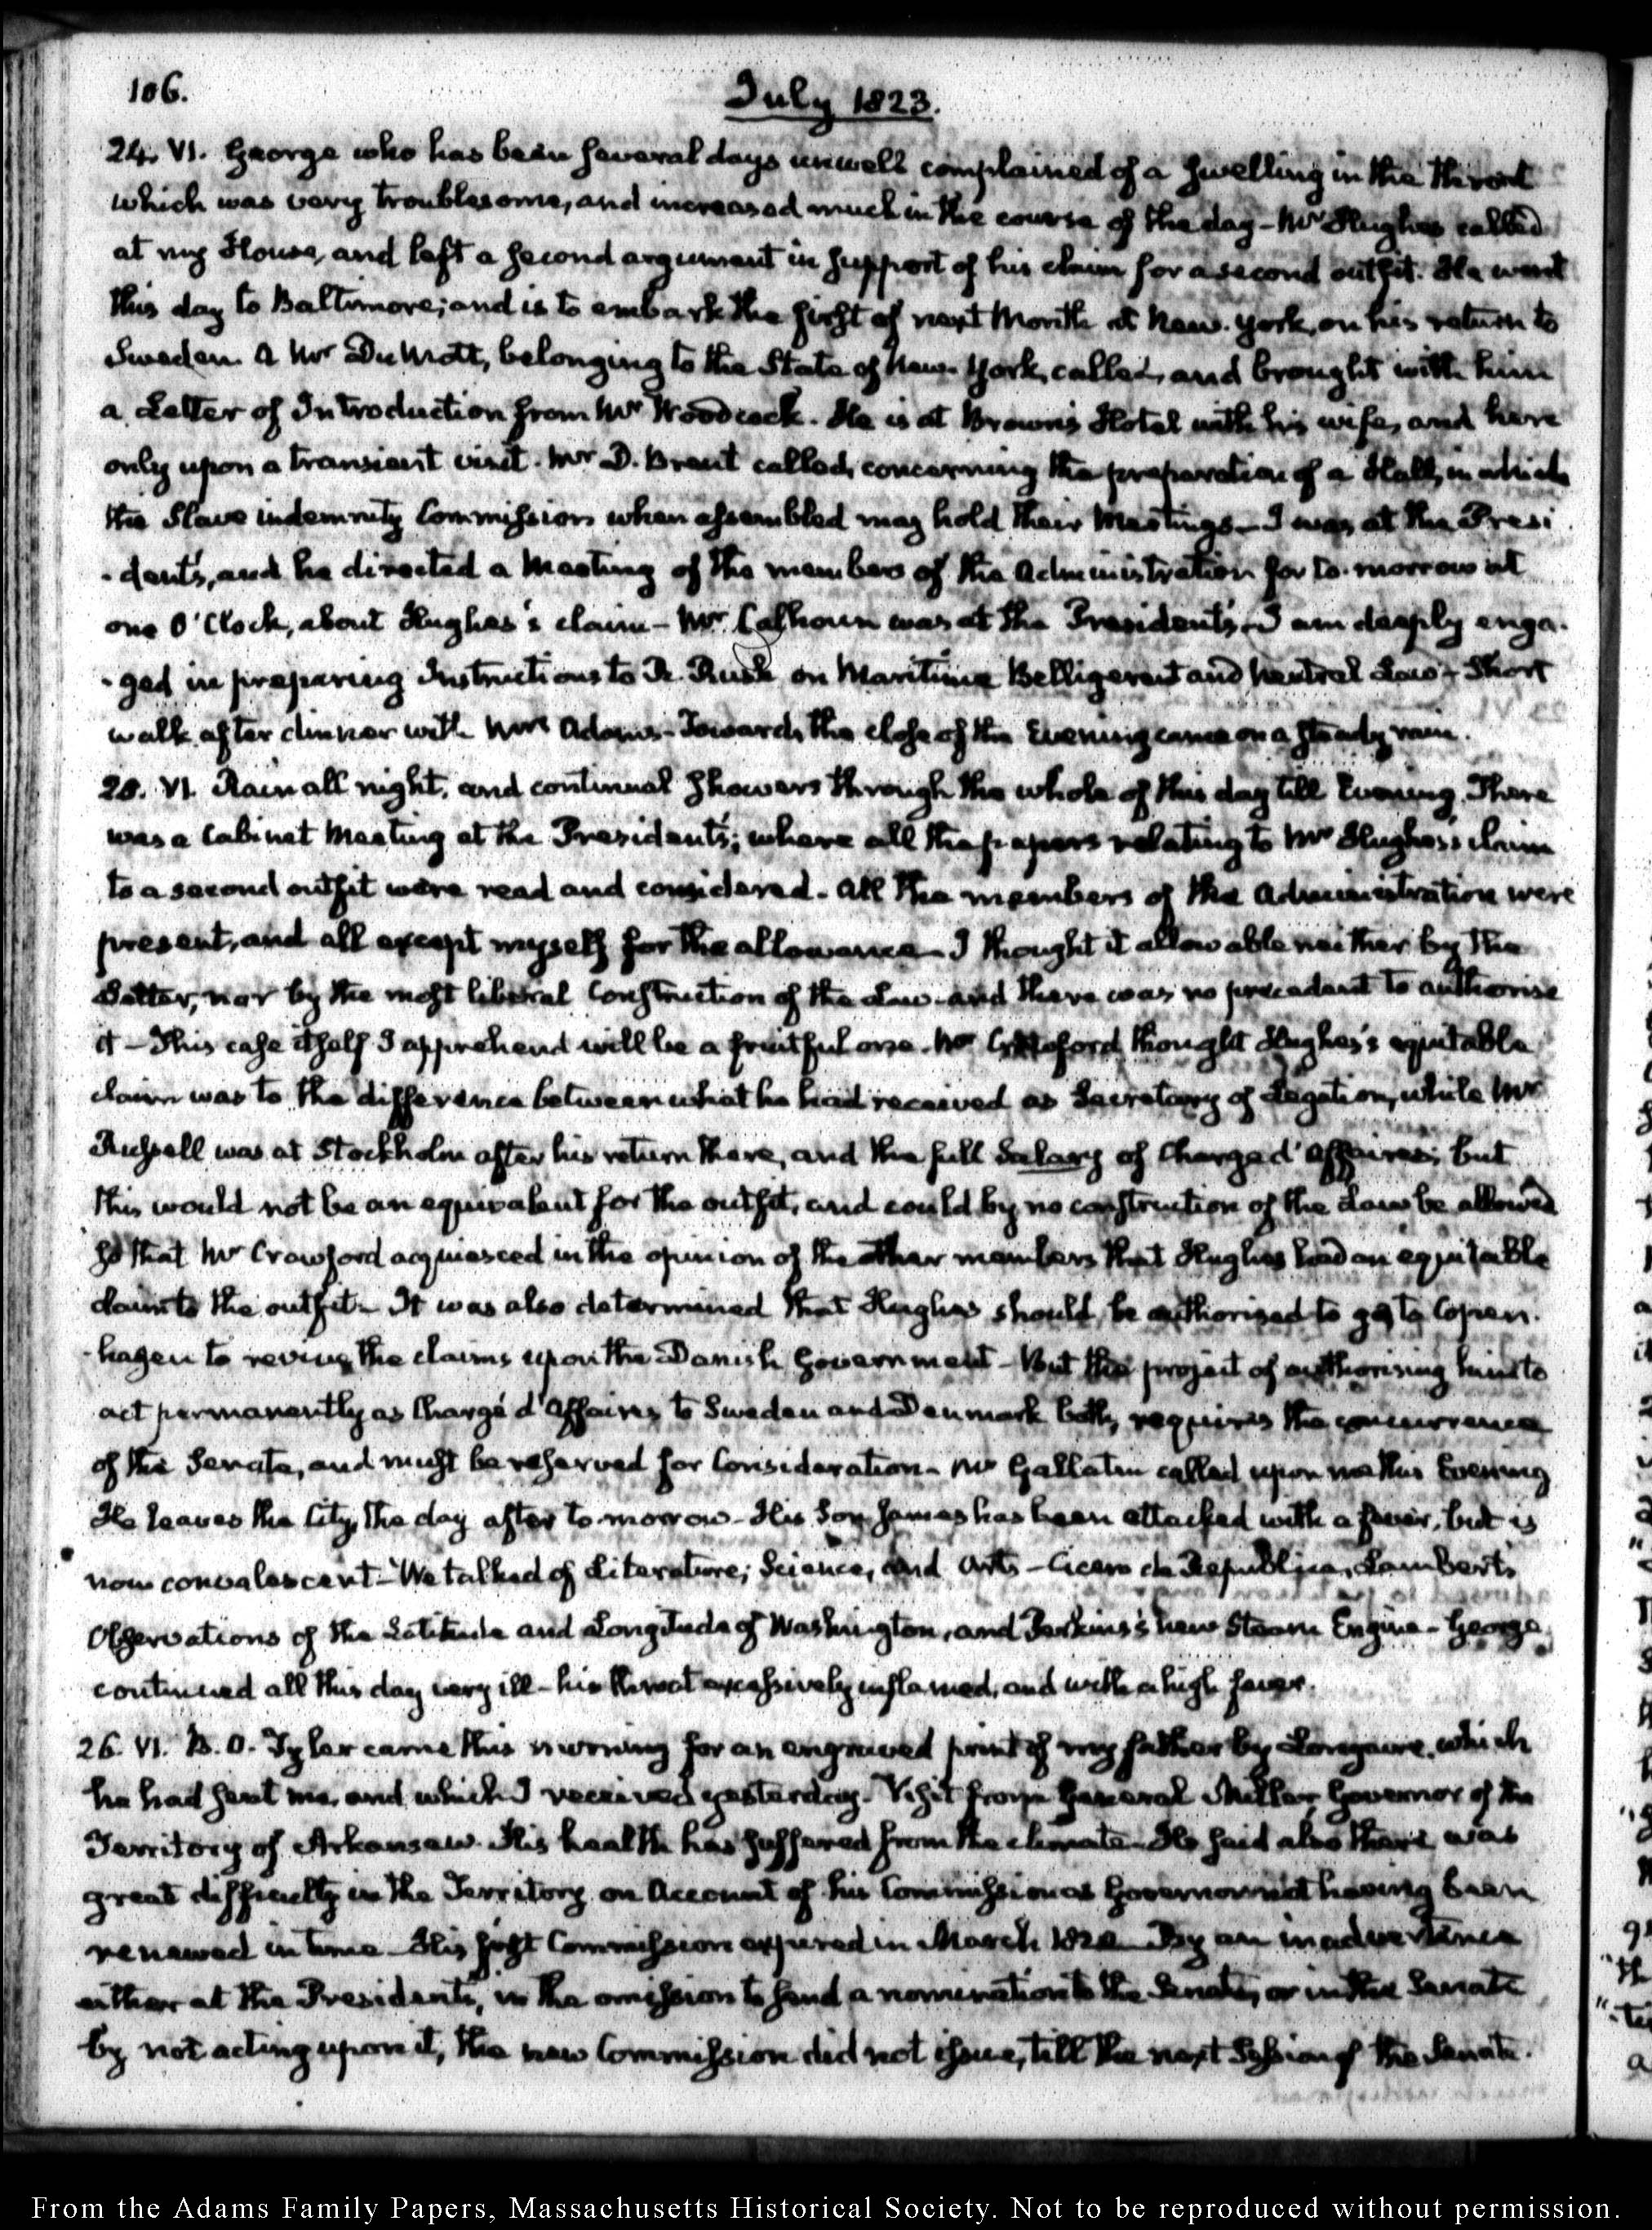 106.
July 1823.
24. VI. George who has been several days unwell complained of a swelling in the throat
which was very troublesome, and increased much in the course of the day — Mr Hughes called
at my House, and left a second argument in support of his claim for a second outfit. He went
this day to Baltimore; and is to embark the first of next Month at New-York, on his return to
Sweden. A Mr De Mott, belonging to the State of New-York, called, and brought with him
a Letter of Introduction from Mr Woodcock. He is at Brown's Hotel with his wife, and here
only upon a transient visit. Mr D. Brent called, concerning the preparation of a Hall, in which
the Slave indemnity Commission when assembled may hold their Meetings — I was at the Presi-
-dent's, and he directed a Meeting of the members of the Administration for to-morrow at
one O'Clock, about Hughes's claim — Mr Calhoun was at the President's — I am deeply enga-
-ged in preparing Instructions to R. Rush on Maritime Belligerent and Neutral Law — Short
walk after dinner with Mrs Adams — Towards the close of the Evening came on a steady rain.
25. VI. Rain all night, and continual showers through the whole of this day till Evening. There
was a Cabinet Meeting at the President's; where all the papers relating to Mr Hughes's claim
to a second outfit were read and considered. All the members of the Administration were
present, and all except myself for the allowance — I thought it allowable neither by the
Letter, nor by the most liberal Construction of the Law — and there was no precedent to authorise
it — This case itself I apprehend will be a fruitful one. Mr Crawford thought Hughes's equitable
claim was to the difference between what he had received as Secretary of Legation, while Mr
Russell was at Stockholm after his return there, and the full Salary of Chargé d'Affaires; but
this would not be an equivalent for the outfit, and could by no construction of the Law be allowed
so that Mr Crawford acquiesced in the opinion of the other members that Hughes had an equitable
claim to the outfit — It was also determined that Hughes should be authorised to go to Copen-
-hagen to revive the claims upon the Danish Government — But the project of authorising him to
act permanently as Chargé d'Affaires to Sweden and Denmark both, requires the concurrence
of the Senate, and must be reserved for Consideration — Mr Gallatin called upon me this Evening
He leaves the City, the day after to-morrow — His Son James has been attacked with a fever, but is
now convalescent — We talked of Literature, Science, and Arts — Cicero de Republica, Lambert's
Observations of the Latitude and Longitude of Washington, and Perkins's new Steam Engine — George
continued all this day very ill — his throat excessively inflamed, and with a high fever.
26. VI. B. O. Tyler came this morning for an engraved print of my father by Longacre, which
he had sent me, and which I received yesterday. Visit from General Miller, Governor of the
Territory of Arkansaw. His health has suffered from the climate — He said also there was
great difficulty in the Territory on Account of his Commission as Governor not having been
renewed in time — His first Commission expired in March 1822 — By an inadvertence
either at the President's, in the omission to send a nomination to the Senate, or in the Senate
by not acting upon it, the new Commission did not issue, till the next Session of the Senate.
From the Adams Family Papers, Massachusetts Historical Society. Not to be reproduced without permission.